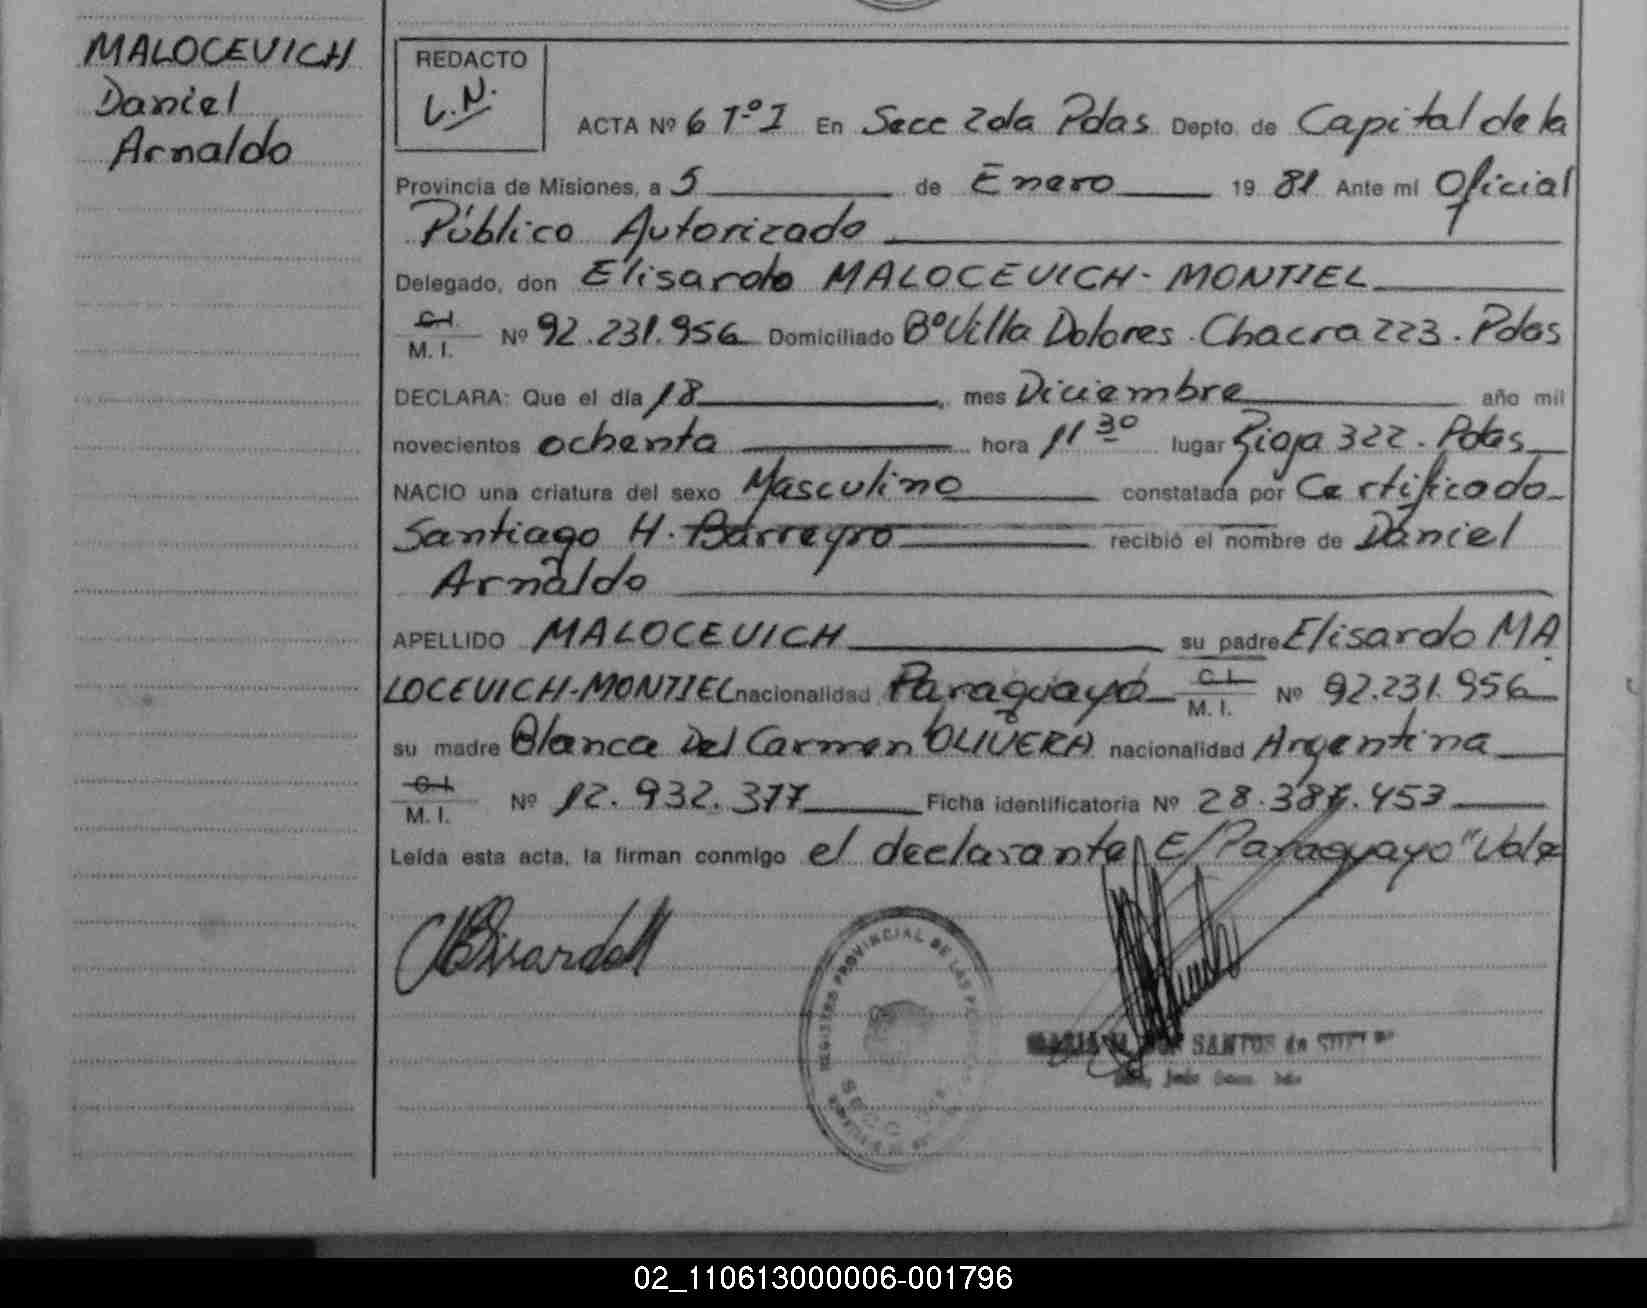 MALOCEVICH
Daniel
Arnaldo
REDACTO
L.N.
ACTA Nº 6 Tº I En Secc 2da Pdas Depto. de Capital de la
Provincia de Misiones, a 5 de Enero 19 81 Ante mí Oficial
Público Autorizado
Delegado, don Elisardo MALOCEVICH-MONTIEL
C.I.
M. I. Nº 92.231.956 Domiciliado Bº Villa Dolores. Chacra 223. Pdas
DECLARA: Que el día 18 mes Diciembre año mil
novecientos ochenta hora 11 30 lugar Rioja 322. Pdas
NACIO una criatura del sexo Masculino constatada por Certificado
Santiago H. Barreyro recibió el nombre de Daniel
Arnaldo
APELLIDO MALOCEVICH su padre Elisardo MA
LOCEVICH-MONTIEL nacionalidad Paraguayo C.I.
M. I. Nº 92.231.956
su madre Blanca Del Carmen OLIVERA nacionalidad Argentina
C.I.
M. I. Nº 12.932.377 Ficha identificatoria Nº 28.387.453
Leída esta acta, la firman conmigo el declarante E/Paraguayo "Vale
REGISTRO PROVINCIAL DE LAS
SANTOS de
02_110613000006-001796